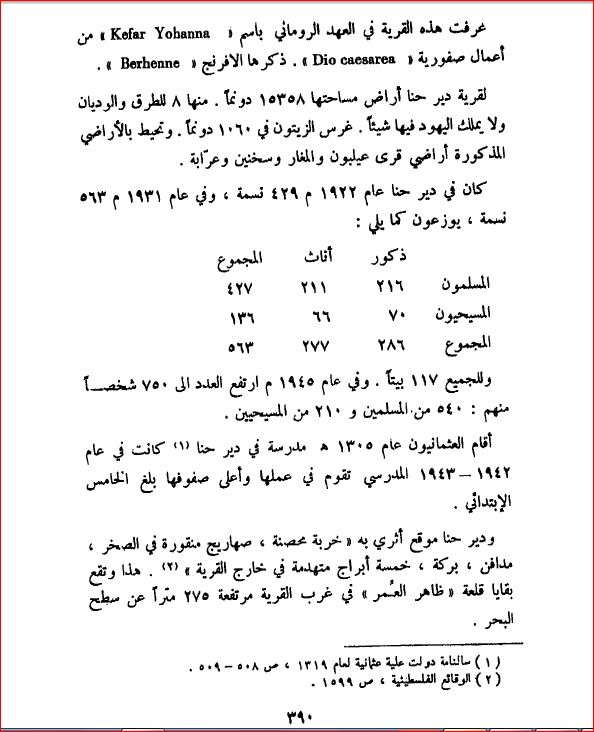 عرفت هذه القرية في العهد الروماني باسم « Kefar Yohanna » من
أعمال صفورية « Dio caesarea » . ذكرها الافرنج « Berhenne » .
لقرية دير حنا أراض مساحتها ١٥٣٥٨ دونماً . منها ٨ للطرق والوديان
ولا يملك اليهود فيها شيئاً . غرس الزيتون في ١٠٦٠ دونماً . وتحيط بالأراضي
المذكورة أراضي قرى عيلبون والمغار وسخنين وعرّابة .
كان في دير حنا عام ١٩٢٢ م ٤٢٩ نسمة ، وفي عام ١٩٣١ م ٥٦٣
نسمة ، يوزعون كما يلي :
ذكور أناث المجموع
المسلمون ٢١٦ ٢١١ ٤٢٧
المسيحيون ٧٠ ٦٦ ١٣٦
المجموع ٢٨٦ ٢٧٧ ٥٦٣
وللجميع ١١٧ بيتاً . وفي عام ١٩٤٥ م ارتفع العدد الى ٧٥٠ شخصـــاً
منهم : ٥٤٠ من المسلمين و ٢١٠ من المسيحيين .
أقام العثمانيون عام ١٣٠٥ ه مدرسة في دير حنا (١) كانت في عام
١٩٤٢ – ١٩٤٣ المدرسي تقوم في عملها وأعلى صفوفها بلغ الخامس
الإبتدائي .
ودير حنا موقع أثري به « خربة محصنة ، صهاريج منقورة في الصخر ،
مدافن ، بركة ، خمسة أبراج متهدمة في خارج القرية » (٢) . هذا وتقع
بقايا قلعة « ظاهر العُمر » في غرب القرية مرتفعة ٢٧٥ متراً عن سطح
البحر .
(١) سالنامة دولت علية عثمانية لعام ١٣١٩ ، ص ٥٠٨ – ٥٠٩ .
(٢) الوقائع الفلسطينية ، ص ١٥٩٩ .
٣٩٠